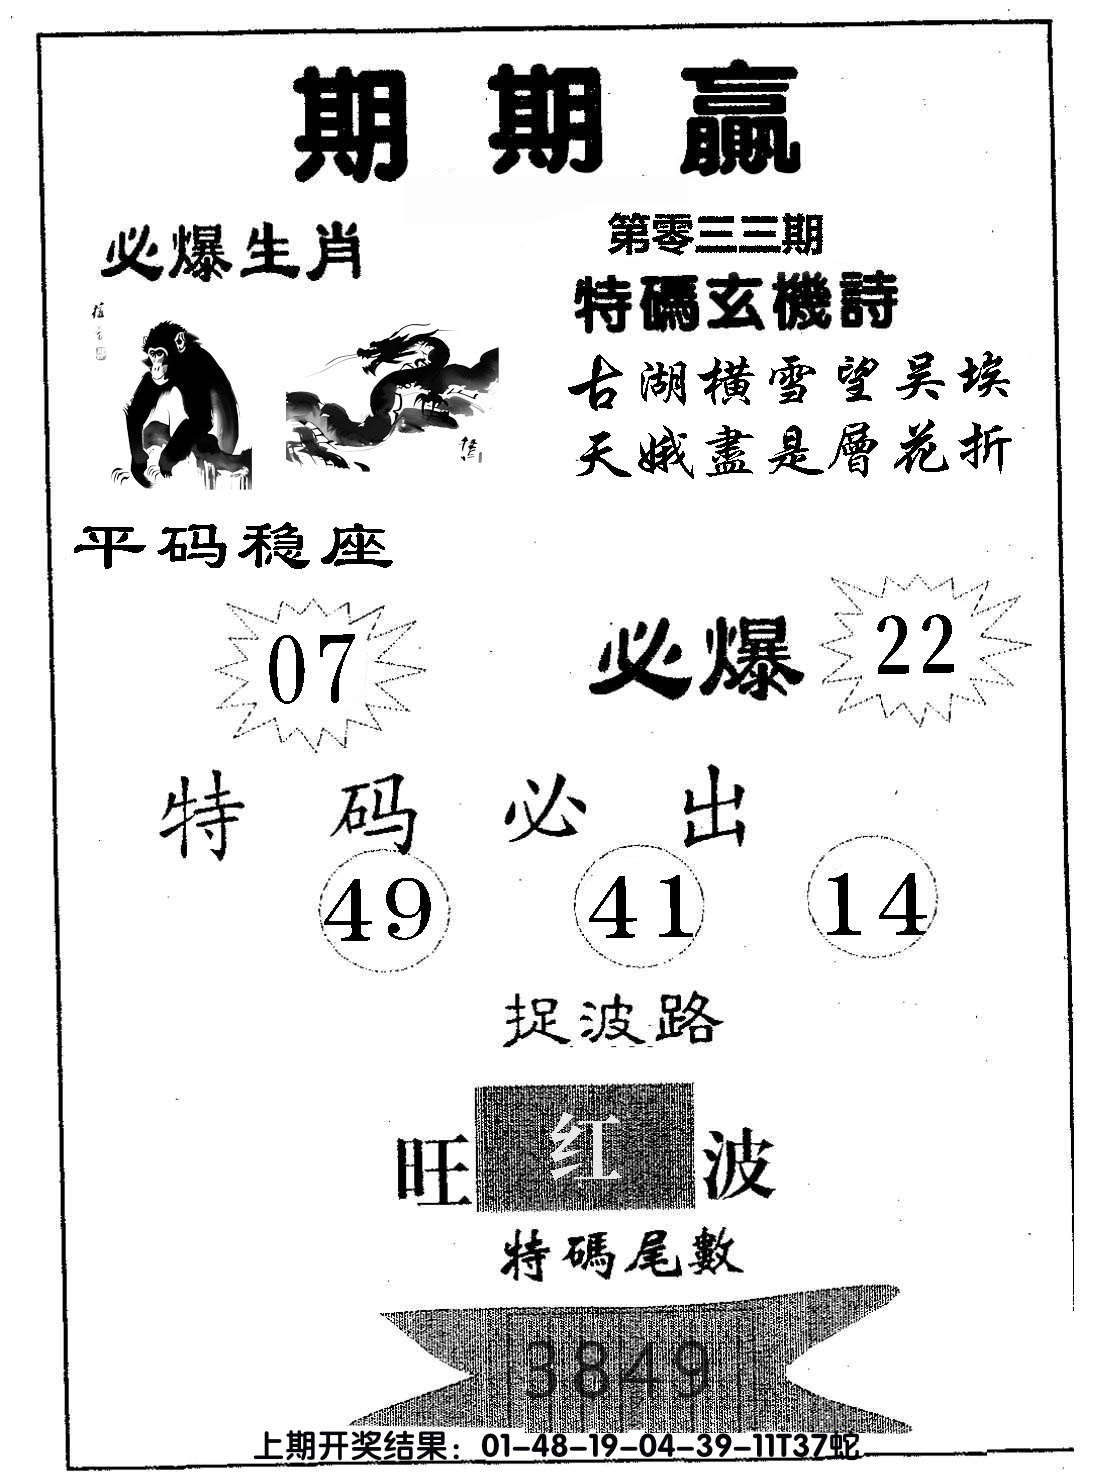 期期赢
必爆生肖
第零三三期
特碼玄機詩
古湖橫雪望吴埃
天娥盡是層花折
平码稳座
07
必爆
22
特码必出
49
41
14
捉波路
旺红波
特碼尾數
3849
上期开奖结果：01-48-19-04-39-11T37蛇